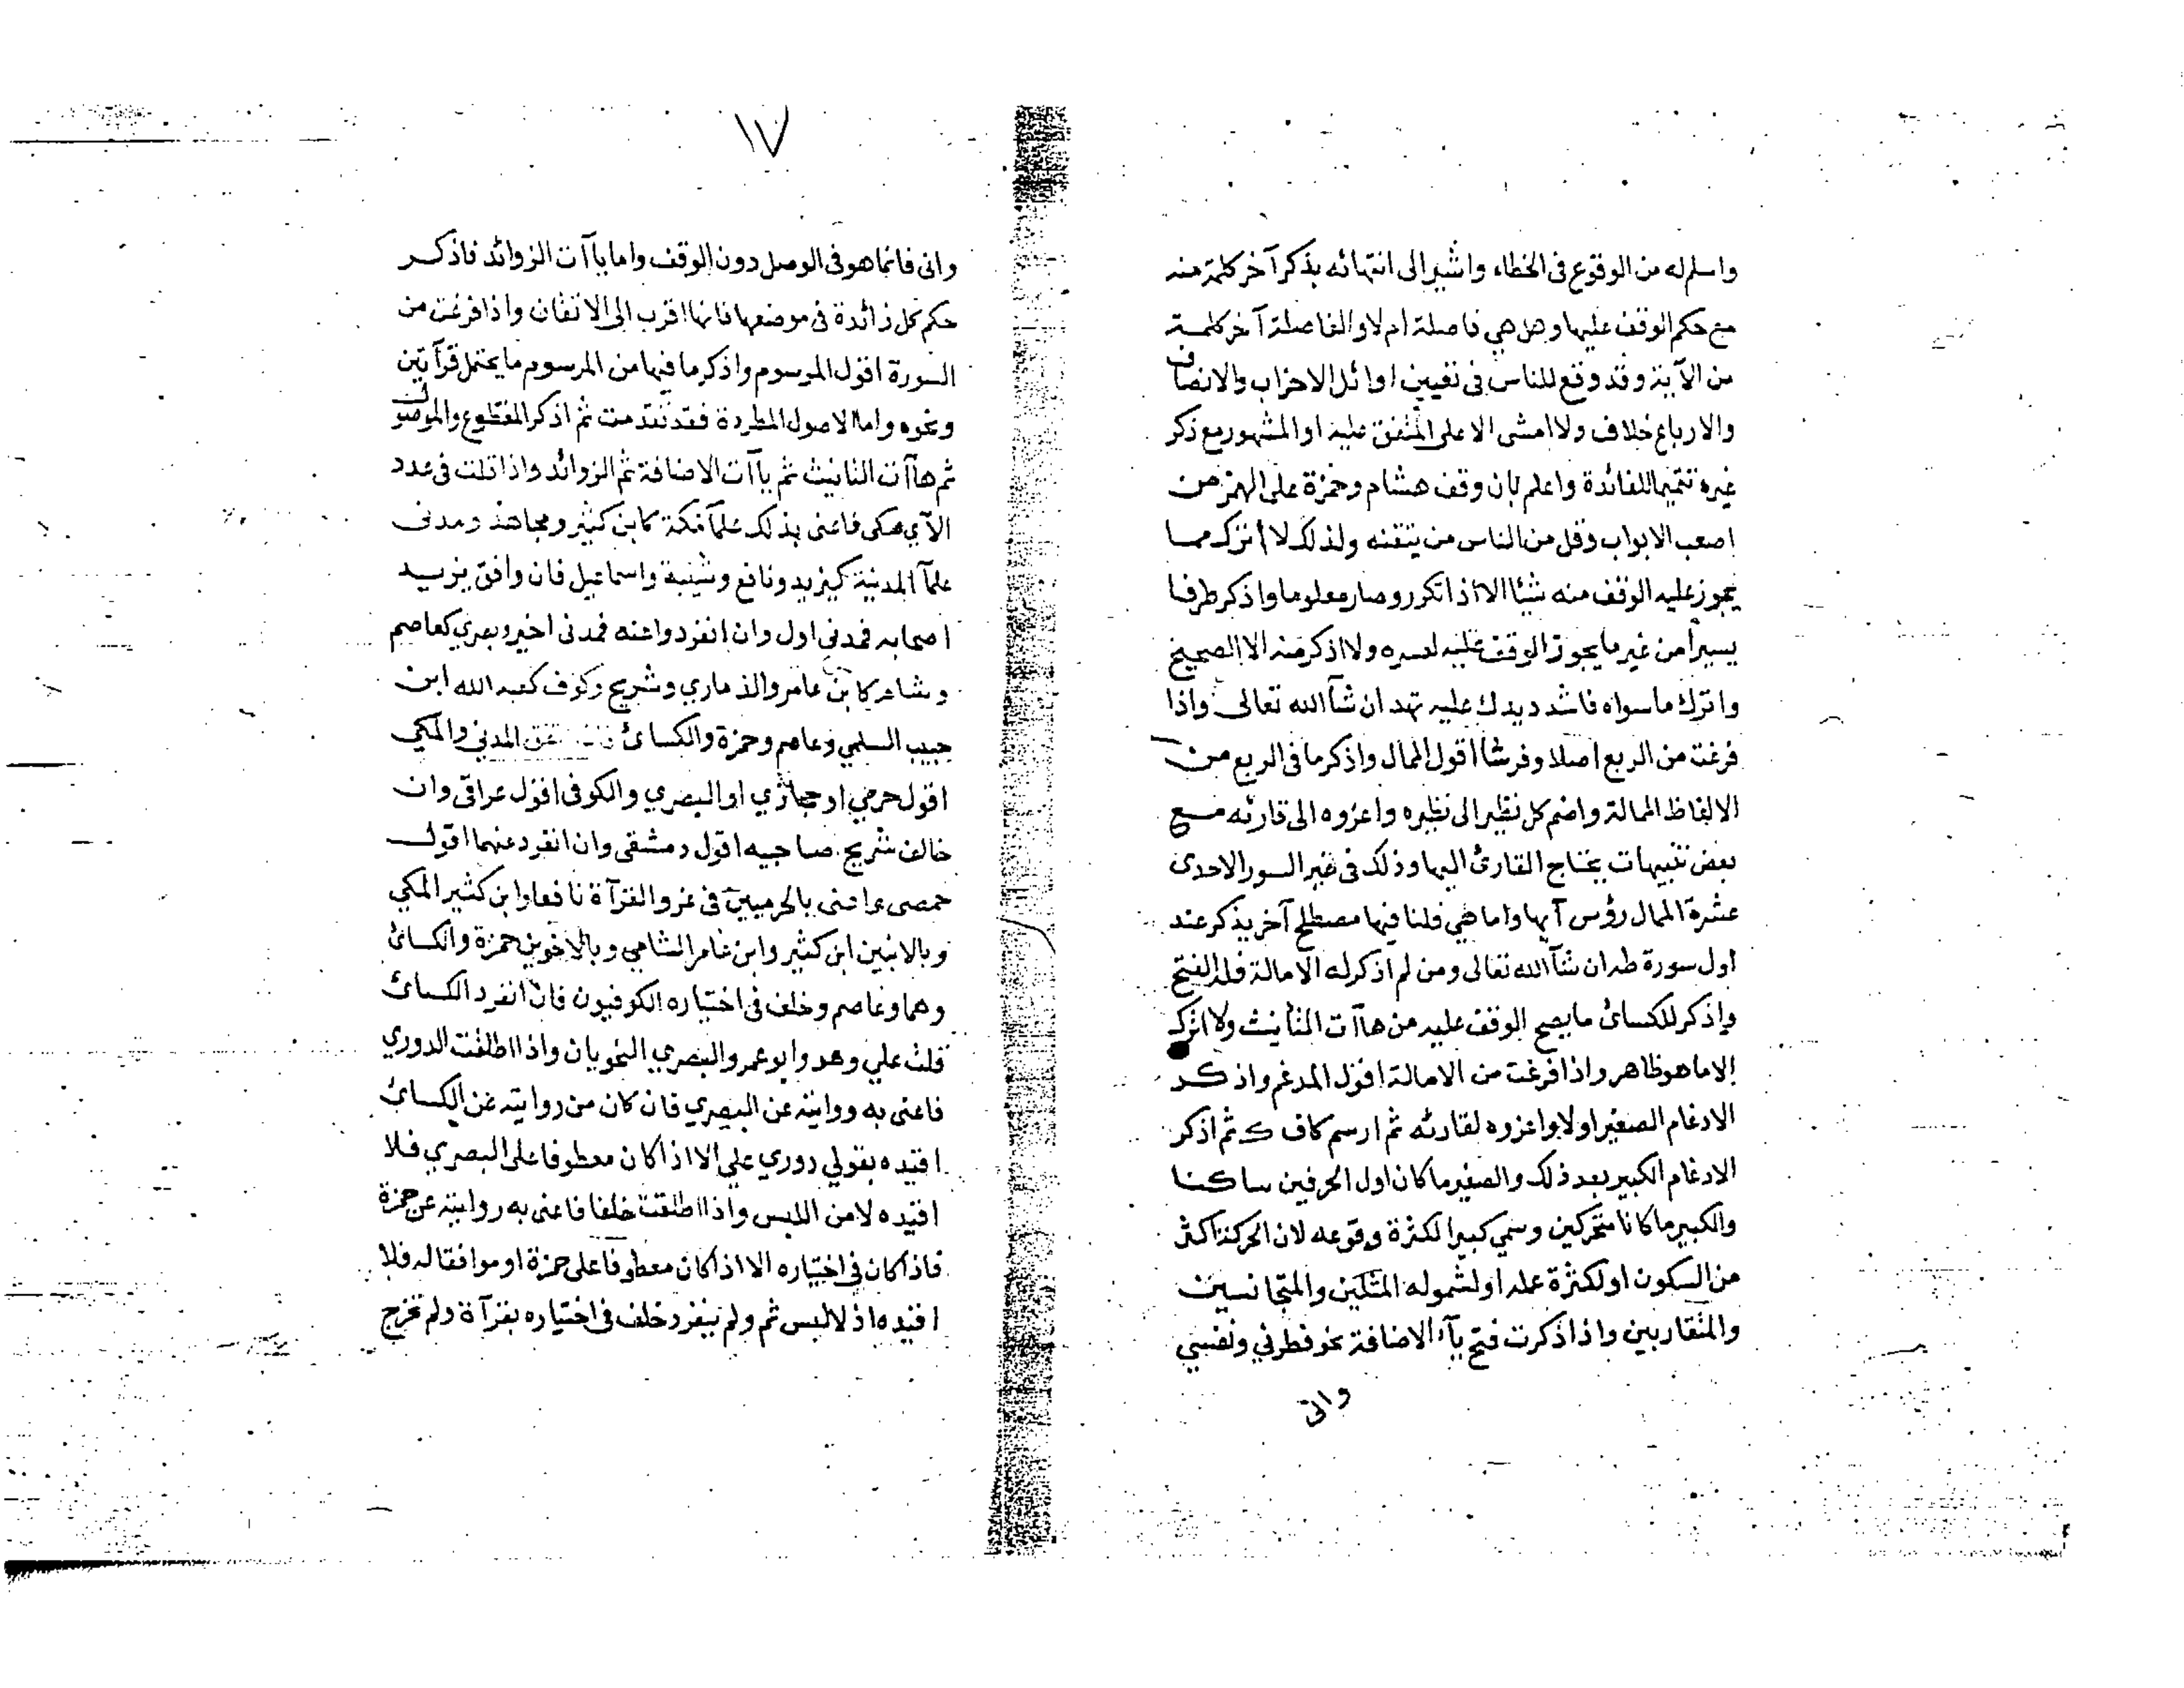 واسلم له من الوقوع في الخطاء واشير الى انتهائه بذكر آخر كلمة منه
مع حكم الوقف عليها وهل هي فاصلة ام لا والفاصلة آخر كلمة
من الآية وقد وقع للناس في تعيين اوائل الاحزاب والانصاف
والارباع خلاف ولا امشى الا على المتفق عليه او المشهور مع ذكر
غيره تتميما للفائدة واعلم بان وقف هشام وحمزة على الهمز من
اصعب الابواب وقل من الناس من يتقنه ولذلك لا أترك مما
يجوز عليه الوقف منه شيئا الا اذا تكرر وصار معلوما واذكر طرفا
يسيرا من غير ما يجوز الوقف عليه لعسره ولا اذكر منه الا الصحيح
واترك ما سواه فاشدد يدك عليه تهد ان شآ الله تعالى واذا
فرغت من الربع اصلا وفرشا اقول الممال واذكر ما في الربع من
الالفاظ الممالة واضم كل نظير الى نظيره واعزوه الى قارئه مع
بعض تنبيهات يحتاج القارئ اليها وذلك في غير السور الاحدى
عشرة الممال رؤس آيها واما هي فلنا فيها مصطلح آخر يذكر عند
اول سورة طه ان شآ الله تعالى ومن لم اذكر له الامالة فله الفتح
واذكر للكسائ ما يصح الوقف عليه من هاآت التأنيث ولا اترك
الا ما هو ظاهر واذا فرغت من الامالة اقول المدغم واذكر
الادغام الصغير اولا واعزوه لقارئه ثم ارسم كاف ك ثم اذكر
الادغام الكبير بعد ذلك والصغير ما كان اول الحرفين ساكنا
والكبير ما كانا متحركين وسمي كبيرا لكثرة وقوعه لان الحركة اكثر
من السكون او لكثرة عمله او لشموله المثلين والمتجانسين
والمتقاربين واذا ذكرت فتح يآء الاضافة نحو فطرني ونفسي
واني
١٧
واني فانما هو في الوصل دون الوقف واما ياآت الزوائد فاذكر
حكم كل زائدة في موضعها فانها اقرب الى الاتقان واذا فرغت من
السورة اقول المرسوم واذكر ما فيها من المرسوم ما يحتمل قرآتين
ونحوه واما الاصول المطردة فقد تقدمت ثم اذكر المقطوع والموصول
ثم هاآت التانيث ثم ياآت الاضافة ثم الزوائد واذا قلت في عدد
الآي مكى فاعنى بذلك علمآ مكة كابن كثير ومجاهد ومدني
علمآ المدينة كيزيد ونافع وشيبة واسماعيل فان وافق يزيد
اصحابه فمدني اول وان انفردوا عنه فمدنى اخير وبصري كعاصم
وشام كابن عامر والذماري وشريح وكوف كعبد الله ابن
حبيب السلمي وعاصم وحمزة والكسائ فان اتفق المدني والمكي
اقول حرمي او حجازي او البصري والكوفى اقول عراقى وان
خالف شريح صاحبيه اقول دمشقى وان انفرد عنهما اقول
حمصى واعنى بالحرميين في عزو القرآة نافعا وابن كثير المكي
وبالابنين ابن كثير وابن عامر الشامي وبالاخوين حمزة والكسائ
وهما وعاصم وخلف في اختياره الكوفيون فان انفرد الكسائ
قلت علي وهو وابو عمر والبصري النحويان واذا اطلقت الدوري
فاعنى به روايته عن البصري فان كان من روايته عن الكسائ
اقيده بقولي دوري علي الا اذا كان معطوفا على البصري فلا
اقيده لامن اللبس واذا اطلقت خلفا فاعنى به روايته عن حمزة
فاذا كان في اختياره الا اذا كان معطوفا على حمزة او موافقا له فلا
اقيده اذ لا لبس ثم ولم ينفرد خلف في اختياره بقرآة ولم تخرج